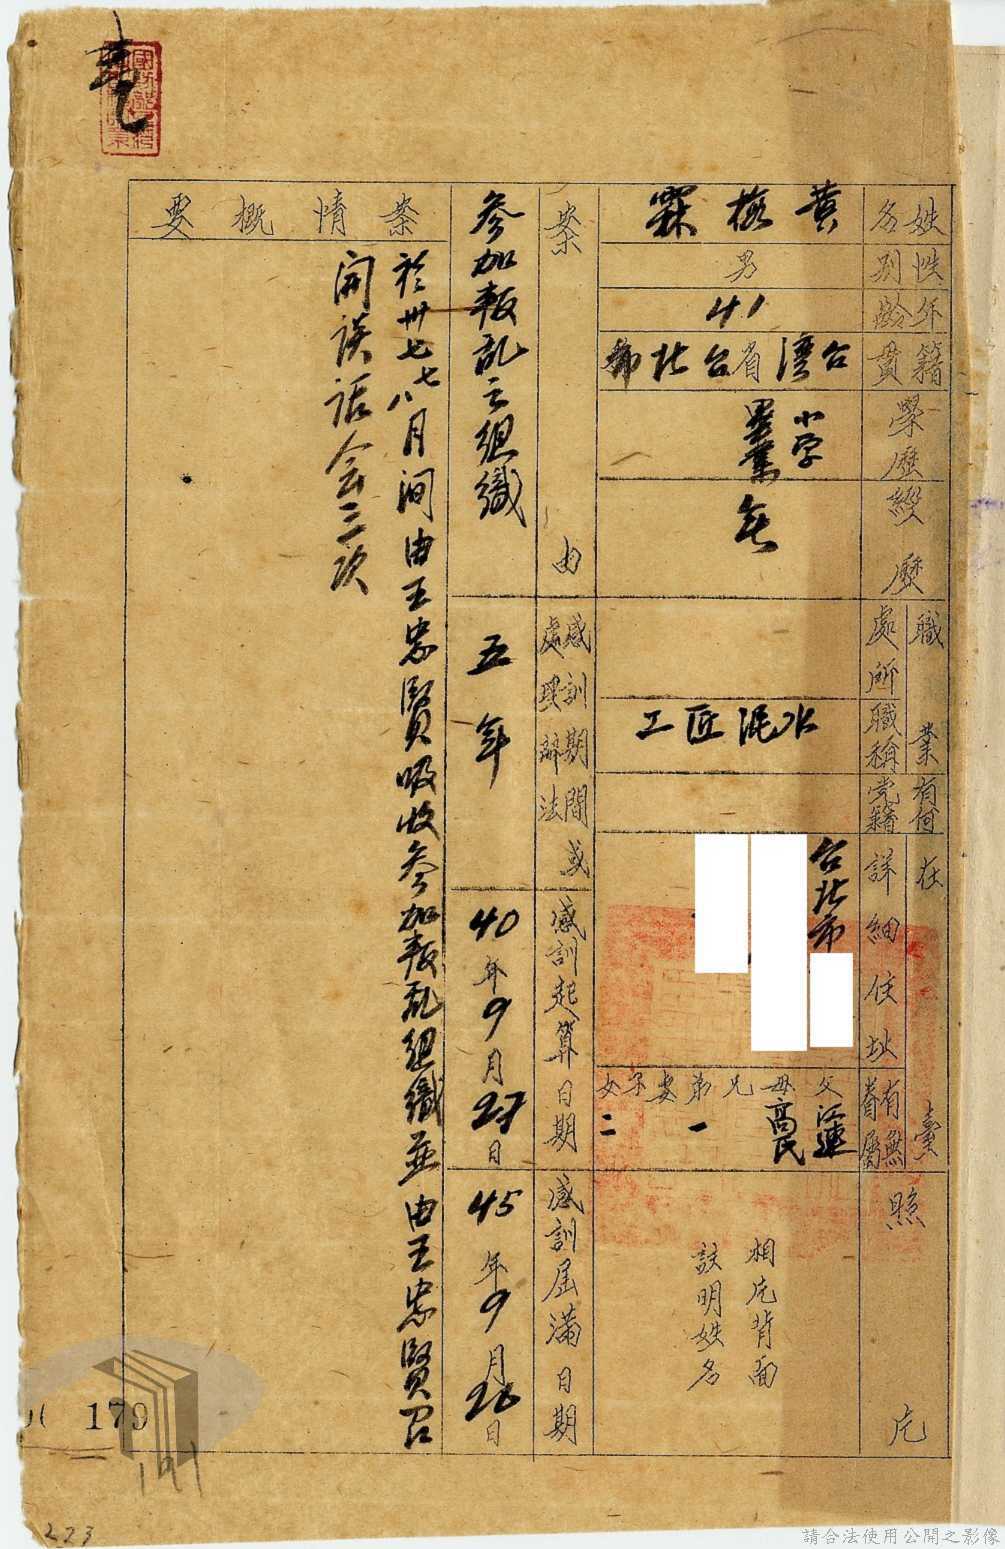 姓名
黃梅霖
性別
男
年齡
41
籍貫
台灣省台北縣
學歷
小学
畢業
經歷
無
職業
處所
職稱
水泥匠工
有何
党籍
在臺
詳細住址
台北市
有無
眷屬
父 母 兄 弟 妻 子 女
江連
高氏
一
二
照片
相片背面
註明姓名
案由
參加叛乱之組織
感訓期間或
處理辦法
五年
感訓起算日期
40年9月27日
感訓屆滿日期
45年9月26日
案情概要
於卅七七八月间由王忠賢吸收參加叛乱組織並由王忠賢召
開談話会三次
179
191
223
請合法使用公開之影像